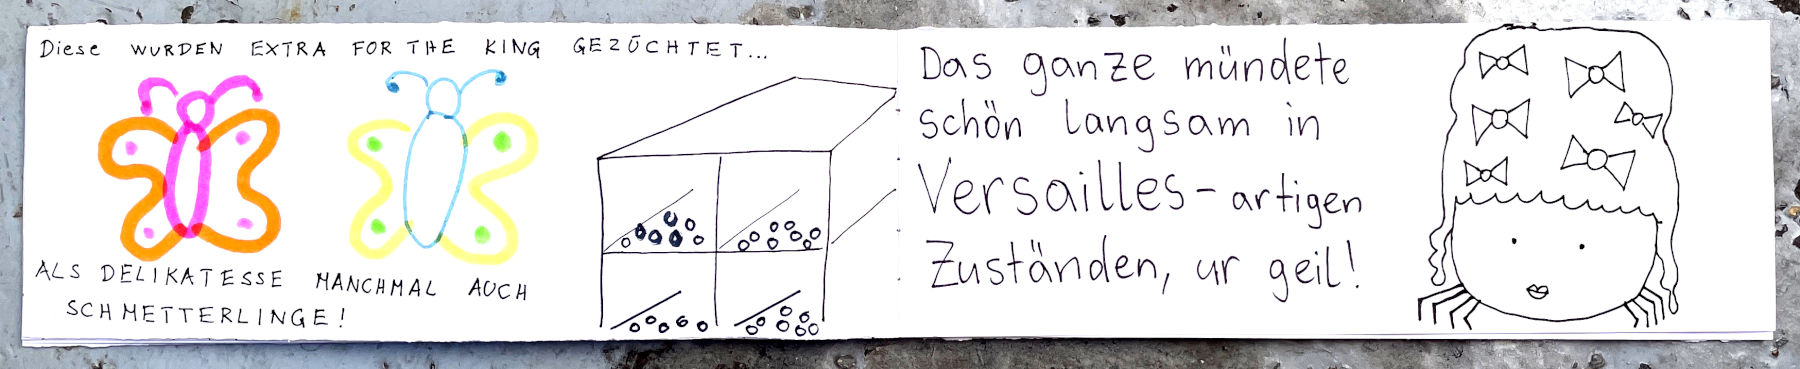 Diese WURDEN EXTRA FOR THE KING GEZÜCHTET...
ALS DELIKATESSE MANCHMAL AUCH
SCHMETTERLINGE!
Das ganze mündete
schön langsam in
Versailles-artigen
Zuständen, ur geil!